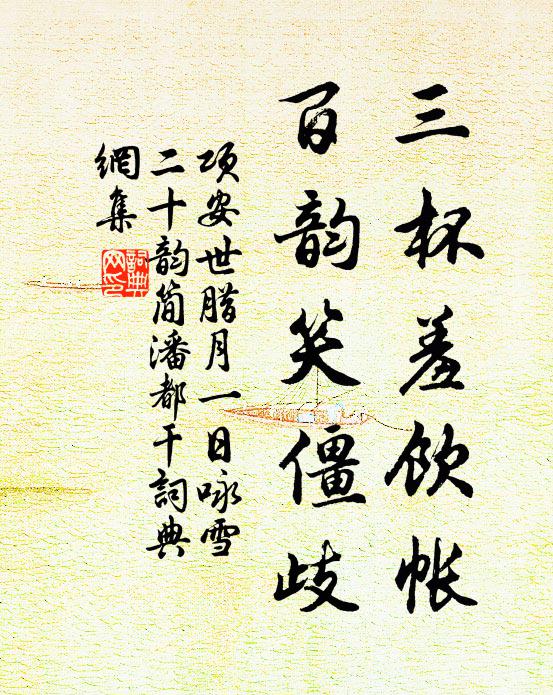 三杯羞饮帐
百韵笑僵歧
项安世腊月一日咏雪
二十韵简潘都干詞典
網集
詞典
网印